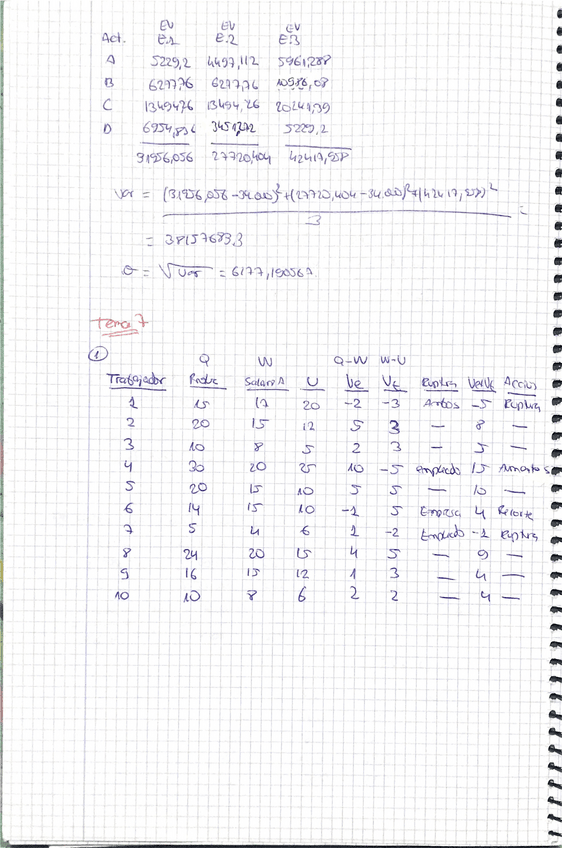 EV EV EV
Act. E.1 E.2 E.3
A 5229,2 4497,112 5961,288
B 6277,76 6277,76 10986,08
C 13494,76 13494,26 20241,39
D 6954,836 3451,272 5229,2
31956,056 27720,404 42417,958
Var = (31956,056 - 34.00)² + (27720,404 - 34.00)² + (42417,958)² =
3
= 38157683,3
σ = √Var = 6177,190567
Tema 7
① Q W Q-W W-U
Trabajador Produc Salario U Ve Vt Ruptura Ve+Vt Accion
1 15 17 20 -2 -3 Ambos -5 Ruptura
2 20 15 12 5 3 — 8 —
3 10 8 5 2 3 — 5 —
4 30 20 25 10 -5 empleado 15 Aumento S
5 20 15 10 5 5 — 10 —
6 14 15 10 -1 5 Empresa 4 Recorte
7 5 4 6 1 -2 Empleado -1 Ruptura
8 24 20 15 4 5 — 9 —
9 16 15 12 1 3 — 4 —
10 10 8 6 2 2 — 4 —